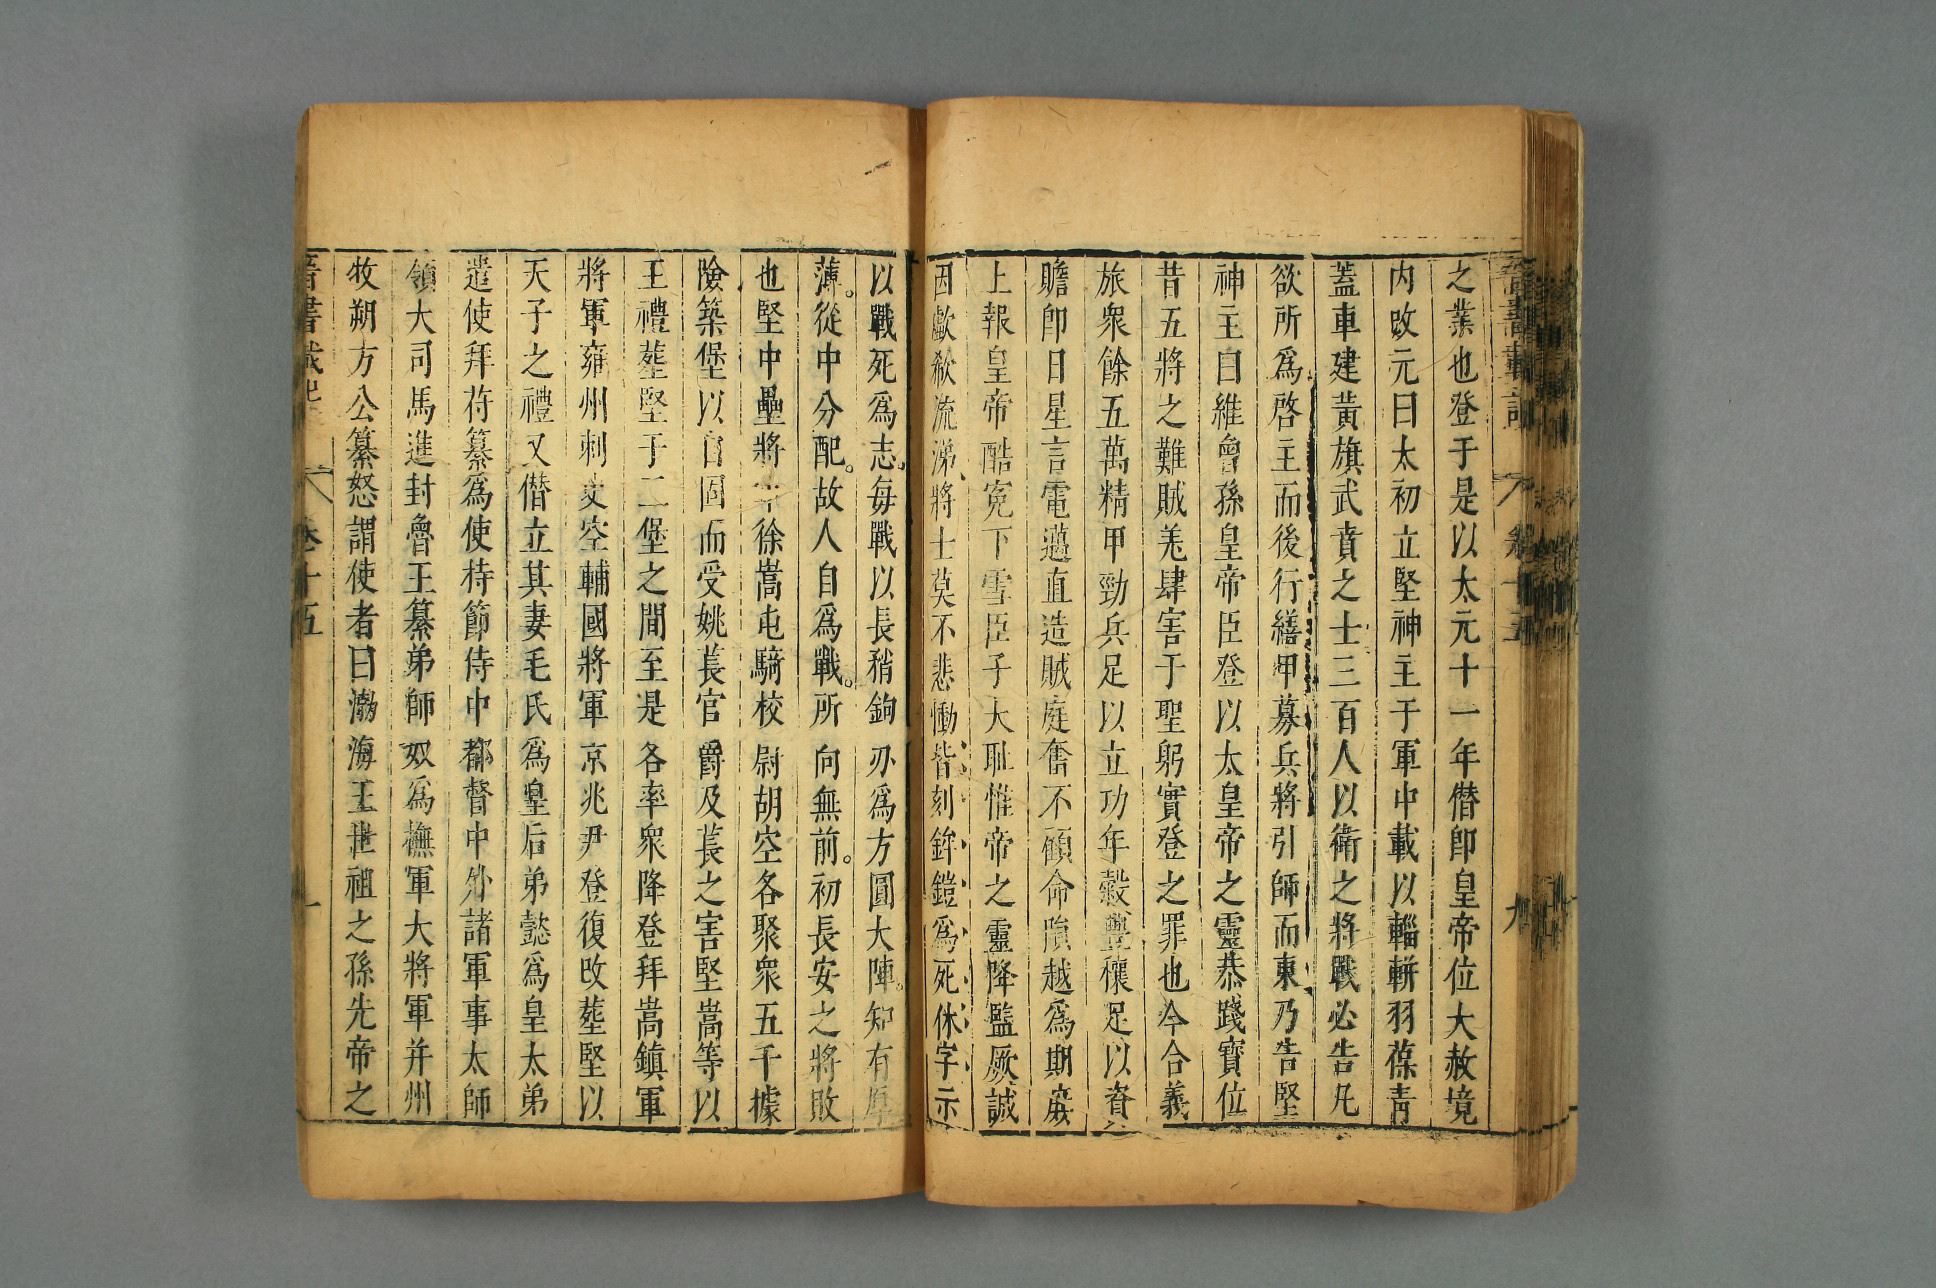 晉書載記
卷十五
九
之業也登于是以太元十一年僣卽皇帝位大赦境
内改元曰太初立堅神主于軍中載以輜軿羽葆靑
蓋車建黃旗武賁之士三百人以衛之將戰必告凡
欲所爲啓主而後行繕甲募兵將引師而東乃告堅
神主曰維曾孫皇帝臣登以太皇帝之靈恭踐寶位
昔五將之難賊羌肆害于聖躬實登之罪也今合義
旅衆餘五萬精甲勁兵足以立功年穀豐穰足以資
贍卽日星言電邁直造賊庭奮不顧命隕越爲期庶
上報皇帝酷寃下雪臣子大耻惟帝之靈降監厥誠
因歔欷流涕將士莫不悲慟皆刻鉾鎧爲死休字示
以戰死爲志。每戰以長矟鉤刃爲方圓大陣。知有厚
薄。從中分配。故人自爲戰。所向無前。初長安之將敗
也堅中壘將軍徐嵩屯騎校尉胡空各聚衆五千據
險築堡以自固而受姚萇官爵及萇之害堅嵩等以
王禮葬堅于二堡之間至是各率衆降登拜嵩鎭軍
將軍雍州刺史空輔國將軍京兆尹登復改葬堅以
天子之禮又僣立其妻毛氏爲皇后弟懿爲皇太弟
遣使拜苻纂爲使持節侍中都督中外諸軍事太師
領大司馬進封魯王纂弟師奴爲撫軍大將軍并州
牧朔方公纂怒謂使者曰渤海王世祖之孫先帝之
晉書載記
卷十五